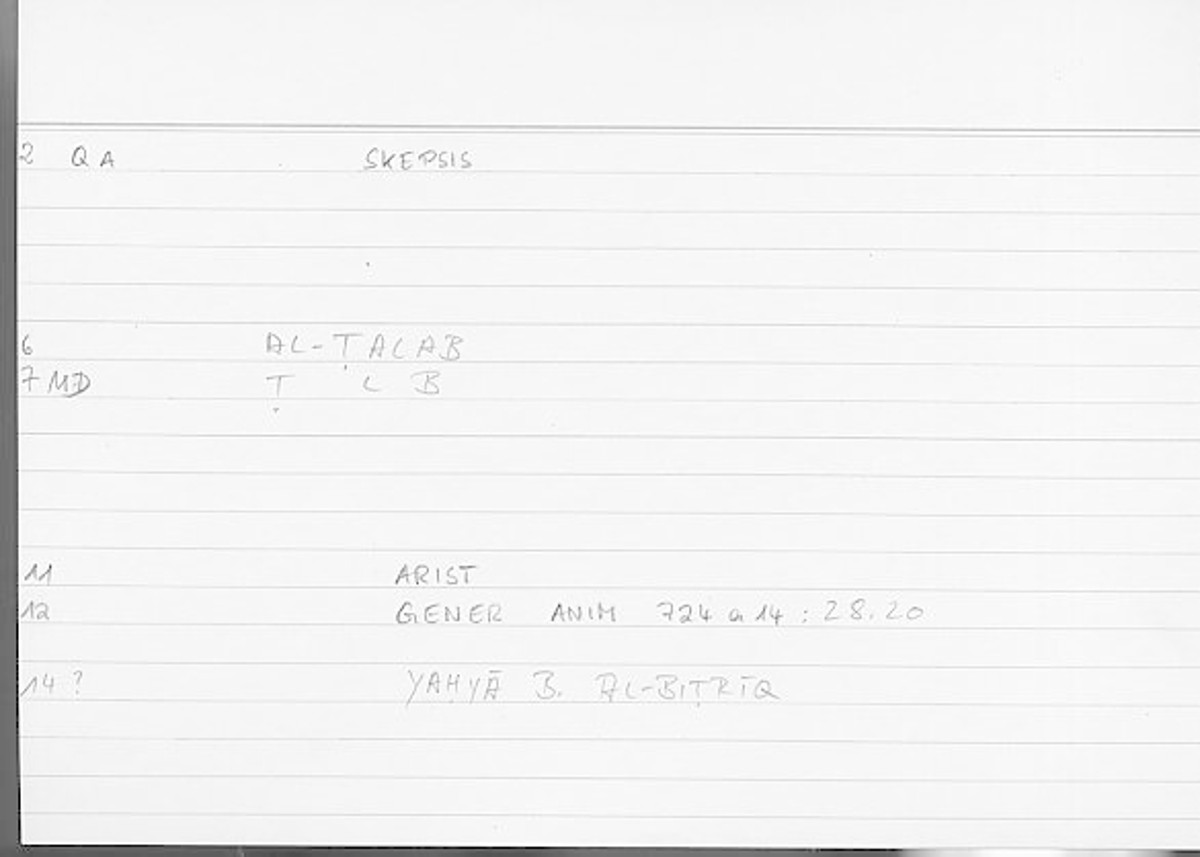 2 QA SKEPSIS
6 AL-ṬALAB
7 MD Ṭ L B
11 ARIST
12 GENER ANIM 724 a 14 : 28.20
14 ? YAḤYĀ B. AL-BIṬRĪQ